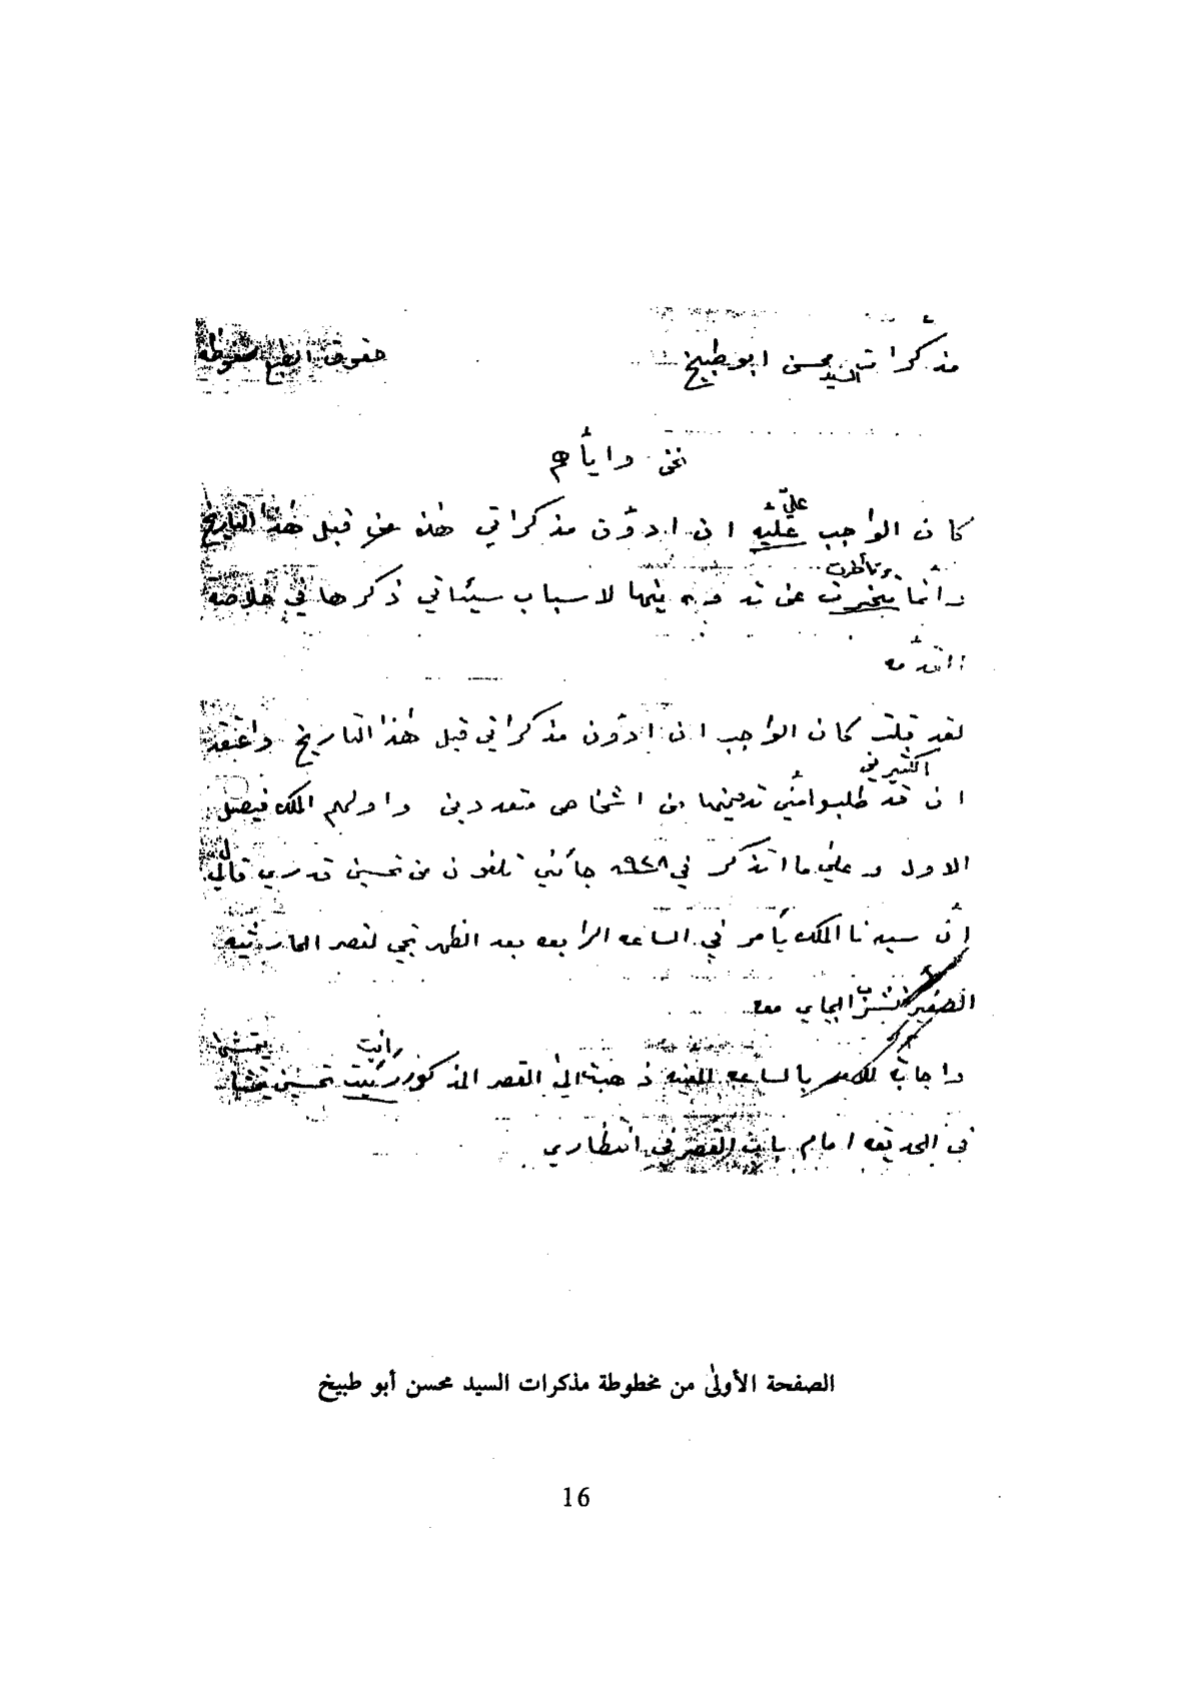 مذكرات السيد محسن ابو طبيخ
حقوق الطبع محفوظه
نحن وايأهم
كان الواجب عليّه عليّ ان ادوّن مذكراتي هٰذه عن قبل هٰذا التاريخ
وانما وتأخرت عن تدوينها لاسباب سيئاتي ذكرها في خلاصة
المقدّمه
لقد قلت كان الواجب ان ادوّن مذكراتي قبل هٰذا التاريخ واعتقد
ان اكثيرين قد طلبوا منّي تدوينها من اشخاص متعددين واولهم الملك فيصل
الاول وعلى ما اتذكر في ٩٢٨ جائني تلفون من تحسين قدري قال لي
أن سيدنا الملك يأمر في الساعه الرابعه بعد الظهر تجي لقصر الحارثيه
الصغير نشرب الچاي معه
واجبت بالساعه المعينه ذهبت الى القصر المذكور رأيت تحسين يتمشى
في الحديقه امام باب القصر في انتظاري
الصفحة الأولىٰ من مخطوطة مذكرات السيد محسن أبو طبيخ
16